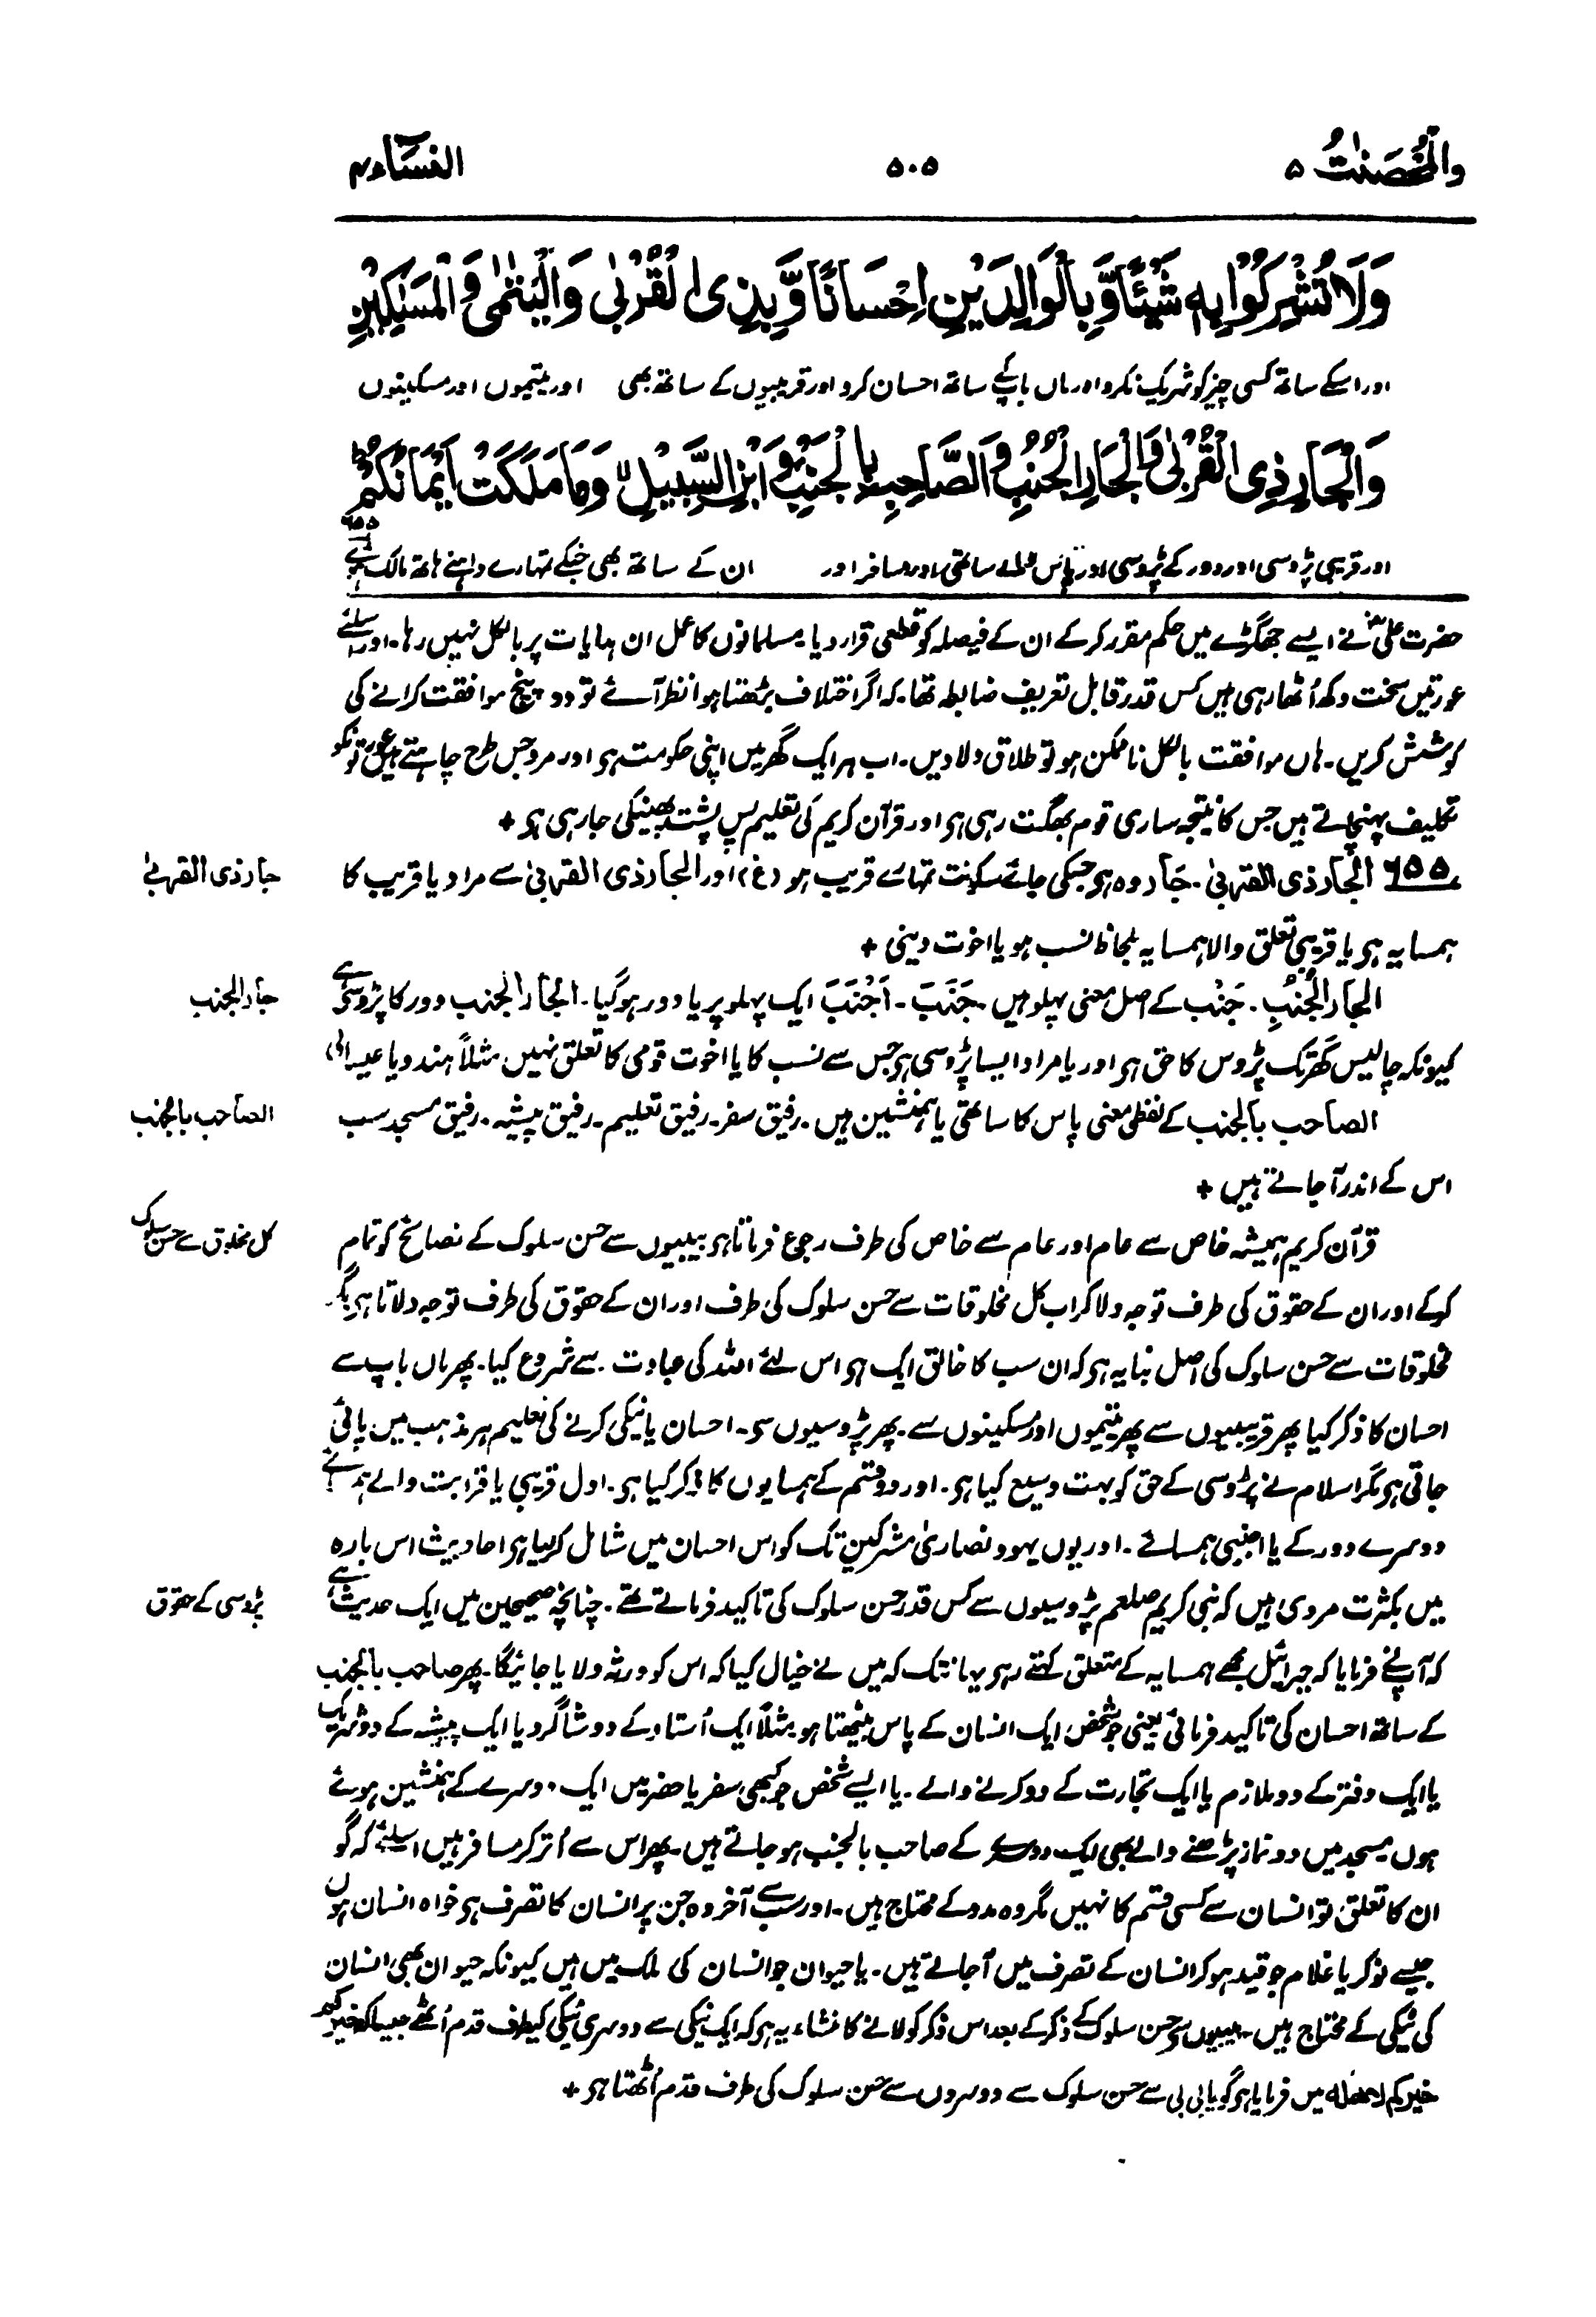 والمحصنٰت ۵
۵۰۵
النساء ۴
وَلَا تُشْرِكُوْا بِهٖ شَيْـًٔا وَّبِالْوَالِدَيْنِ اِحْسَانًا وَّبِذِى الْقُرْبٰى وَالْيَتٰمٰى وَالْمَسٰكِيْنِ
اور اسکے ساتھ کسی چیز کو شریک نکرو اور ماں باپ کے ساتھ احسان کرو اور قریبیوں کے ساتھ بھی اور یتیموں اور مسکینوں
وَالْجَارِ ذِى الْقُرْبٰى وَالْجَارِ الْجُنُبِ وَالصَّاحِبِ بِالْجَنْۢبِ وَابْنِ السَّبِيْلِ ۙ وَمَا مَلَكَتْ اَيْمَانُكُمْ ؕ ۶۵۵
اور قریبی پڑوسی اور دور کے پڑوسی اور پاس والے ساتھی اور مسافر اور ان کے ساتھ بھی جنکے تمہارے داہنے ہاتھ مالک ہوئے
حضرت علیؓ نے ایسے جھگڑے میں حکم مقرر کرکے ان کے فیصلہ کو قطعی قرار دیا۔ مسلمانوں کا عمل ان ہدایات پر بالکل نہیں رہا۔ اور اسلئے
عورتیں سخت دکھ اُٹھا رہی ہیں کس قدر قابل تعریف ضابطہ تھا۔ کہ اگر اختلاف بڑھتا ہوا نظر آئے تو دو پنچ موافقت کرانے کی
کوشش کریں۔ ہاں موافقت بالکل ناممکن ہو تو طلاق دلا دیں۔ اب ہر ایک گھر میں اپنی حکومت ہی اور مرد جس طرح چاہتے ہیں عورتونکو
تکلیف پہنچاتے ہیں جس کا نتیجہ ساری قوم بھگت رہی ہی اور قرآن کریم کی تعلیم پس پشت پھینکی جا رہی ہی +
۶۵۵ الجار ذی القربیٰ۔ جَار وہ ہی جسکی جائے سکونت تمہارے قریب ہو (غ) اور الجار ذی القربیٰ سے مراد یا قریب کا
جار ذی القربیٰ
ہمسایہ ہی یا قریبی تعلق والا ہمسایہ بلحاظ نسب ہو یا اخوت دینی +
الجار الجُنُبِ۔ جَنْب کے اصل معنی پہلو ہیں۔ جَنَبَ۔ اَجْنَبَ ایک پہلو پر یا دور ہو گیا۔ الجار الجنب دور کا پڑوسی ہے
جار الجنب
کیونکہ چالیس گھر تک پڑوس کا حق ہی اور یا مراد ایسا پڑوسی ہی جس سے نسب کا یا اخوت قومی کا تعلق نہیں مثلاً ہندو یا عیسائی
الصاحب بالجنب کے لفظی معنی پاس کا ساتھی یا ہمنشین ہیں۔ رفیق سفر۔ رفیق تعلیم۔ رفیق پیشہ۔ رفیق مسجد سب
الصاحب بالجنب
اس کے اندر آجاتے ہیں +
قرآن کریم ہمیشہ خاص سے عام اور عام سے خاص کی طرف رجوع فرماتا ہی بیبیوں سے حسن سلوک کے نصائح کو تمام
کل مخلوق سے حسن سلوک
کرکے اور ان کے حقوق کی طرف توجہ دلا کر اب کل مخلوقات سے حسن سلوک کی طرف اور ان کے حقوق کی طرف توجہ دلاتا ہی مگر
مخلوقات سے حسن سلوک کی اصل بنا یہ ہی کہ ان سب کا خالق ایک ہی اس لئے اللہ کی عبادت سے شروع کیا۔ پھر ماں باپ سے
احسان کا ذکر کیا پھر قریبیوں سے پھر یتیموں اور مسکینوں سے۔ پھر پڑوسیوں سی۔ احسان یا نیکی کرنے کی تعلیم ہر مذہب میں پائی
جاتی ہی مگر اسلام نے پڑوسی کے حق کو بہت وسیع کیا ہی۔ اور دو قسم کے ہمسایوں کا ذکر کیا ہی۔ اول قریبی یا قرابت والے ہمسائے
دوسرے دور کے یا اجنبی ہمسائے۔ اور یوں یہود و نصاریٰ مشرکین تک کو اس احسان میں شامل کر لیا ہی احادیث اس بارہ
میں بکثرت مروی ہیں کہ نبی کریم صلعم پڑوسیوں سے کس قدر حسن سلوک کی تاکید فرماتے تھے۔ چنانچہ صحیحین میں ایک حدیث ہے
پڑوسی کے حقوق
کہ آپنے فرمایا کہ جبرائیل مجھے ہمسایہ کے متعلق کہتے رہی یہانتک کہ میں نے خیال کیا کہ اس کو ورثہ دلایا جائیگا۔ پھر صاحب بالجنب
کے ساتھ احسان کی تاکید فرمائی یعنی جو شخص ایک انسان کے پاس بیٹھتا ہو مثلاً ایک اُستاد کے دو شاگرد یا ایک پیشہ کے دو شریک
یا ایک دفتر کے دو ملازم یا ایک تجارت کے دو کرنے والے۔ یا ایسے شخص جو کبھی سفر یا حضر میں ایک دوسرے کے ہمنشین ہوئے
ہوں مسجد میں دو نماز پڑھنے والے بھی ایک دوسرے کے صاحب بالجنب ہو جاتے ہیں۔ پھر اس سے اُتر کر مسافر ہیں اسلئے کہ گو
ان کا تعلق تو انسان سے کسی قسم کا نہیں مگر وہ مدد کے محتاج ہیں۔ اور سب سے آخر وہ جن پر انسان کا تصرف ہی خواہ انسان ہوں
جیسے نوکر یا غلام جو قید ہو کر انسان کے تصرف میں آجاتے ہیں۔ یا حیوان جو انسان کی ملک میں ہیں کیونکہ حیوان بھی انسان
کی نیکی کے محتاج ہیں۔ بیبیوں سی حسن سلوک کے ذکر کے بعد اس ذکر کو لانے کا منشاء یہ ہی کہ ایک نیکی سے دوسری نیکی کیطرف قدم اُٹھے جیسا کہ خیرکم
خیرکم لاھلہ میں فرمایا ہی گویا بی بی سے حسن سلوک سے دوسروں سے حسن سلوک کی طرف قدم اُٹھتا ہی +